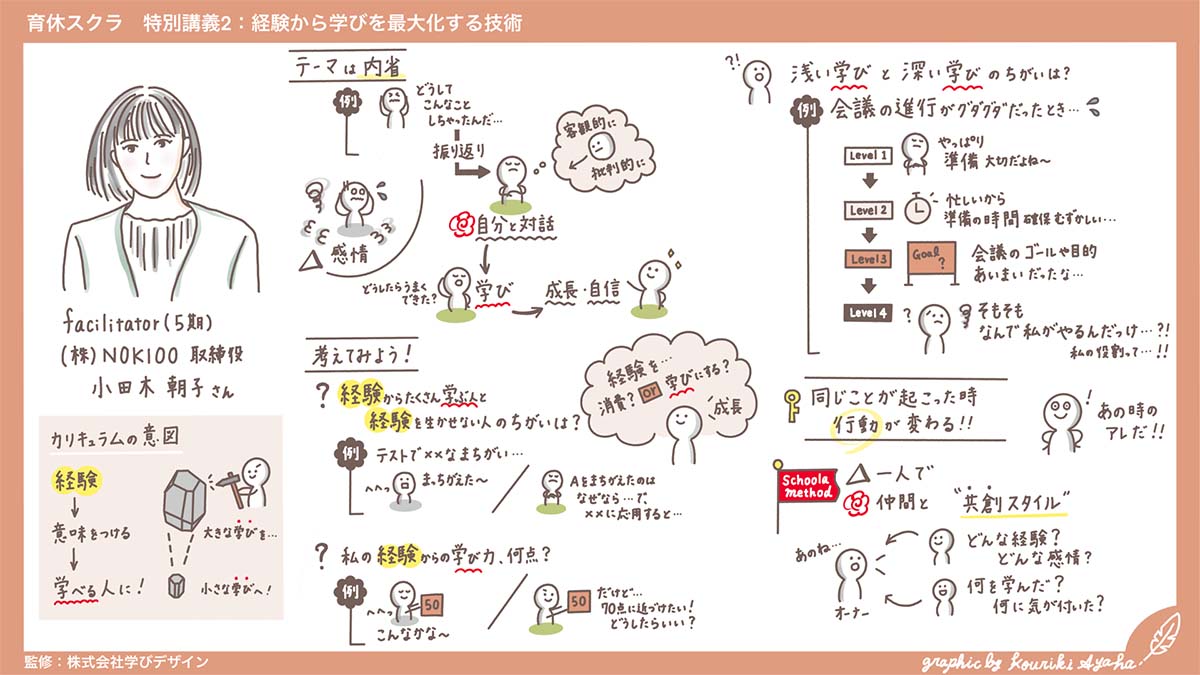 育休スクラ 特別講義2：経験から学びを最大化する技術
facilitator(5期)
(株)NOKIOO 取締役
小田木 朝子さん
カリキュラムの意図
経験
意味をつける
学べる人に！
大きな学びを…
小さな学びへ！
テーマは内省
例
どうして
こんなこと
しちゃったんだ…
振り返り
客観的に
批判的に
感情
自分と対話
どうしたらうまく
できた？
学び
成長・自信
考えてみよう！
? 経験からたくさん学ぶ人と
経験を生かせない人のちがいは？
例
テストで××なまちがい…
へへっ
まちがえた〜
Aをまちがえたのは
なぜなら…で、
××に応用すると…
経験を…
消費？ or 学びにする？
成長
? 私の経験からの学び力、何点？
例
へへっ
50
こんなかな〜
50
だけど…
70点に近づけたい！
どうしたらいい？
?!
浅い学びと深い学びのちがいは？
例
会議の進行がグダグダだったとき…
Level 1
やっぱり
準備 大切だよね〜
Level 2
忙しいから
準備の時間 確保むずかしい…
Level 3
Goal
?
会議のゴールや目的
あいまいだったな…
Level 4
?
そもそも
なんで私がやるんだっけ…?!
私の役割って…!!
同じことが起こった時
行動が変わる!!
!
あの時の
アレだ!!
Schoola
method
一人で
仲間と
"共創スタイル"
あのね…
オーナー
どんな経験？
どんな感情？
何を学んだ？
何に気が付いた？
監修：株式会社学びデザイン
graphic by Kouriki Ayaha.